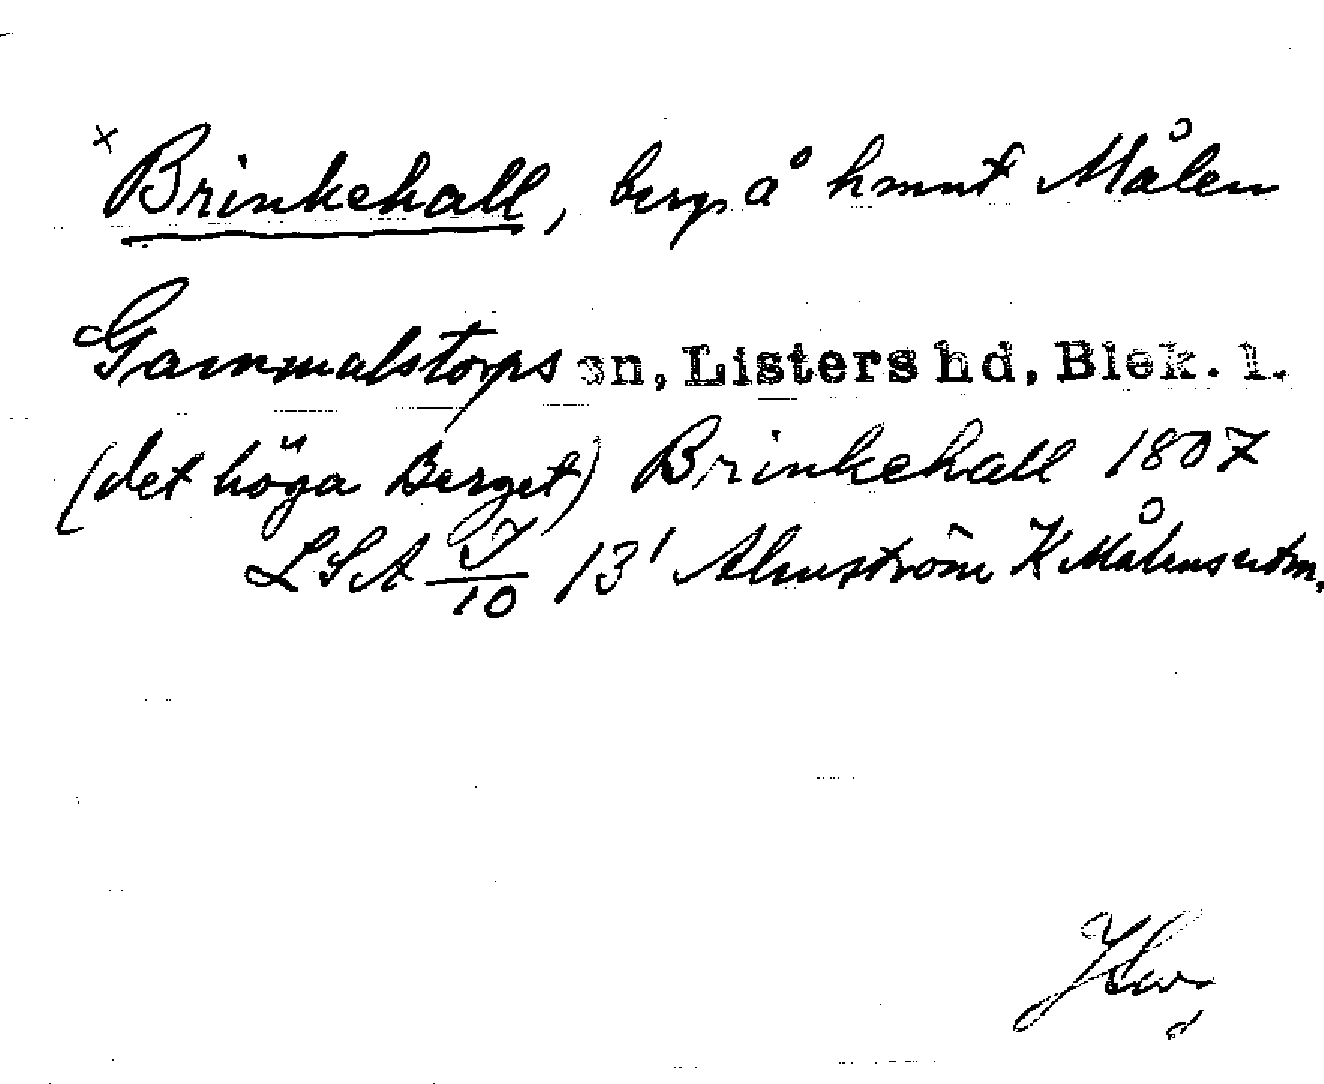 x Brinkehall, berg å hmnt Målen
Gammalstorps sn, Listers hd, Blek. l.
(det höga Berget) Brinkehall 1807
LSA 10 13' Almström K Målens utm.